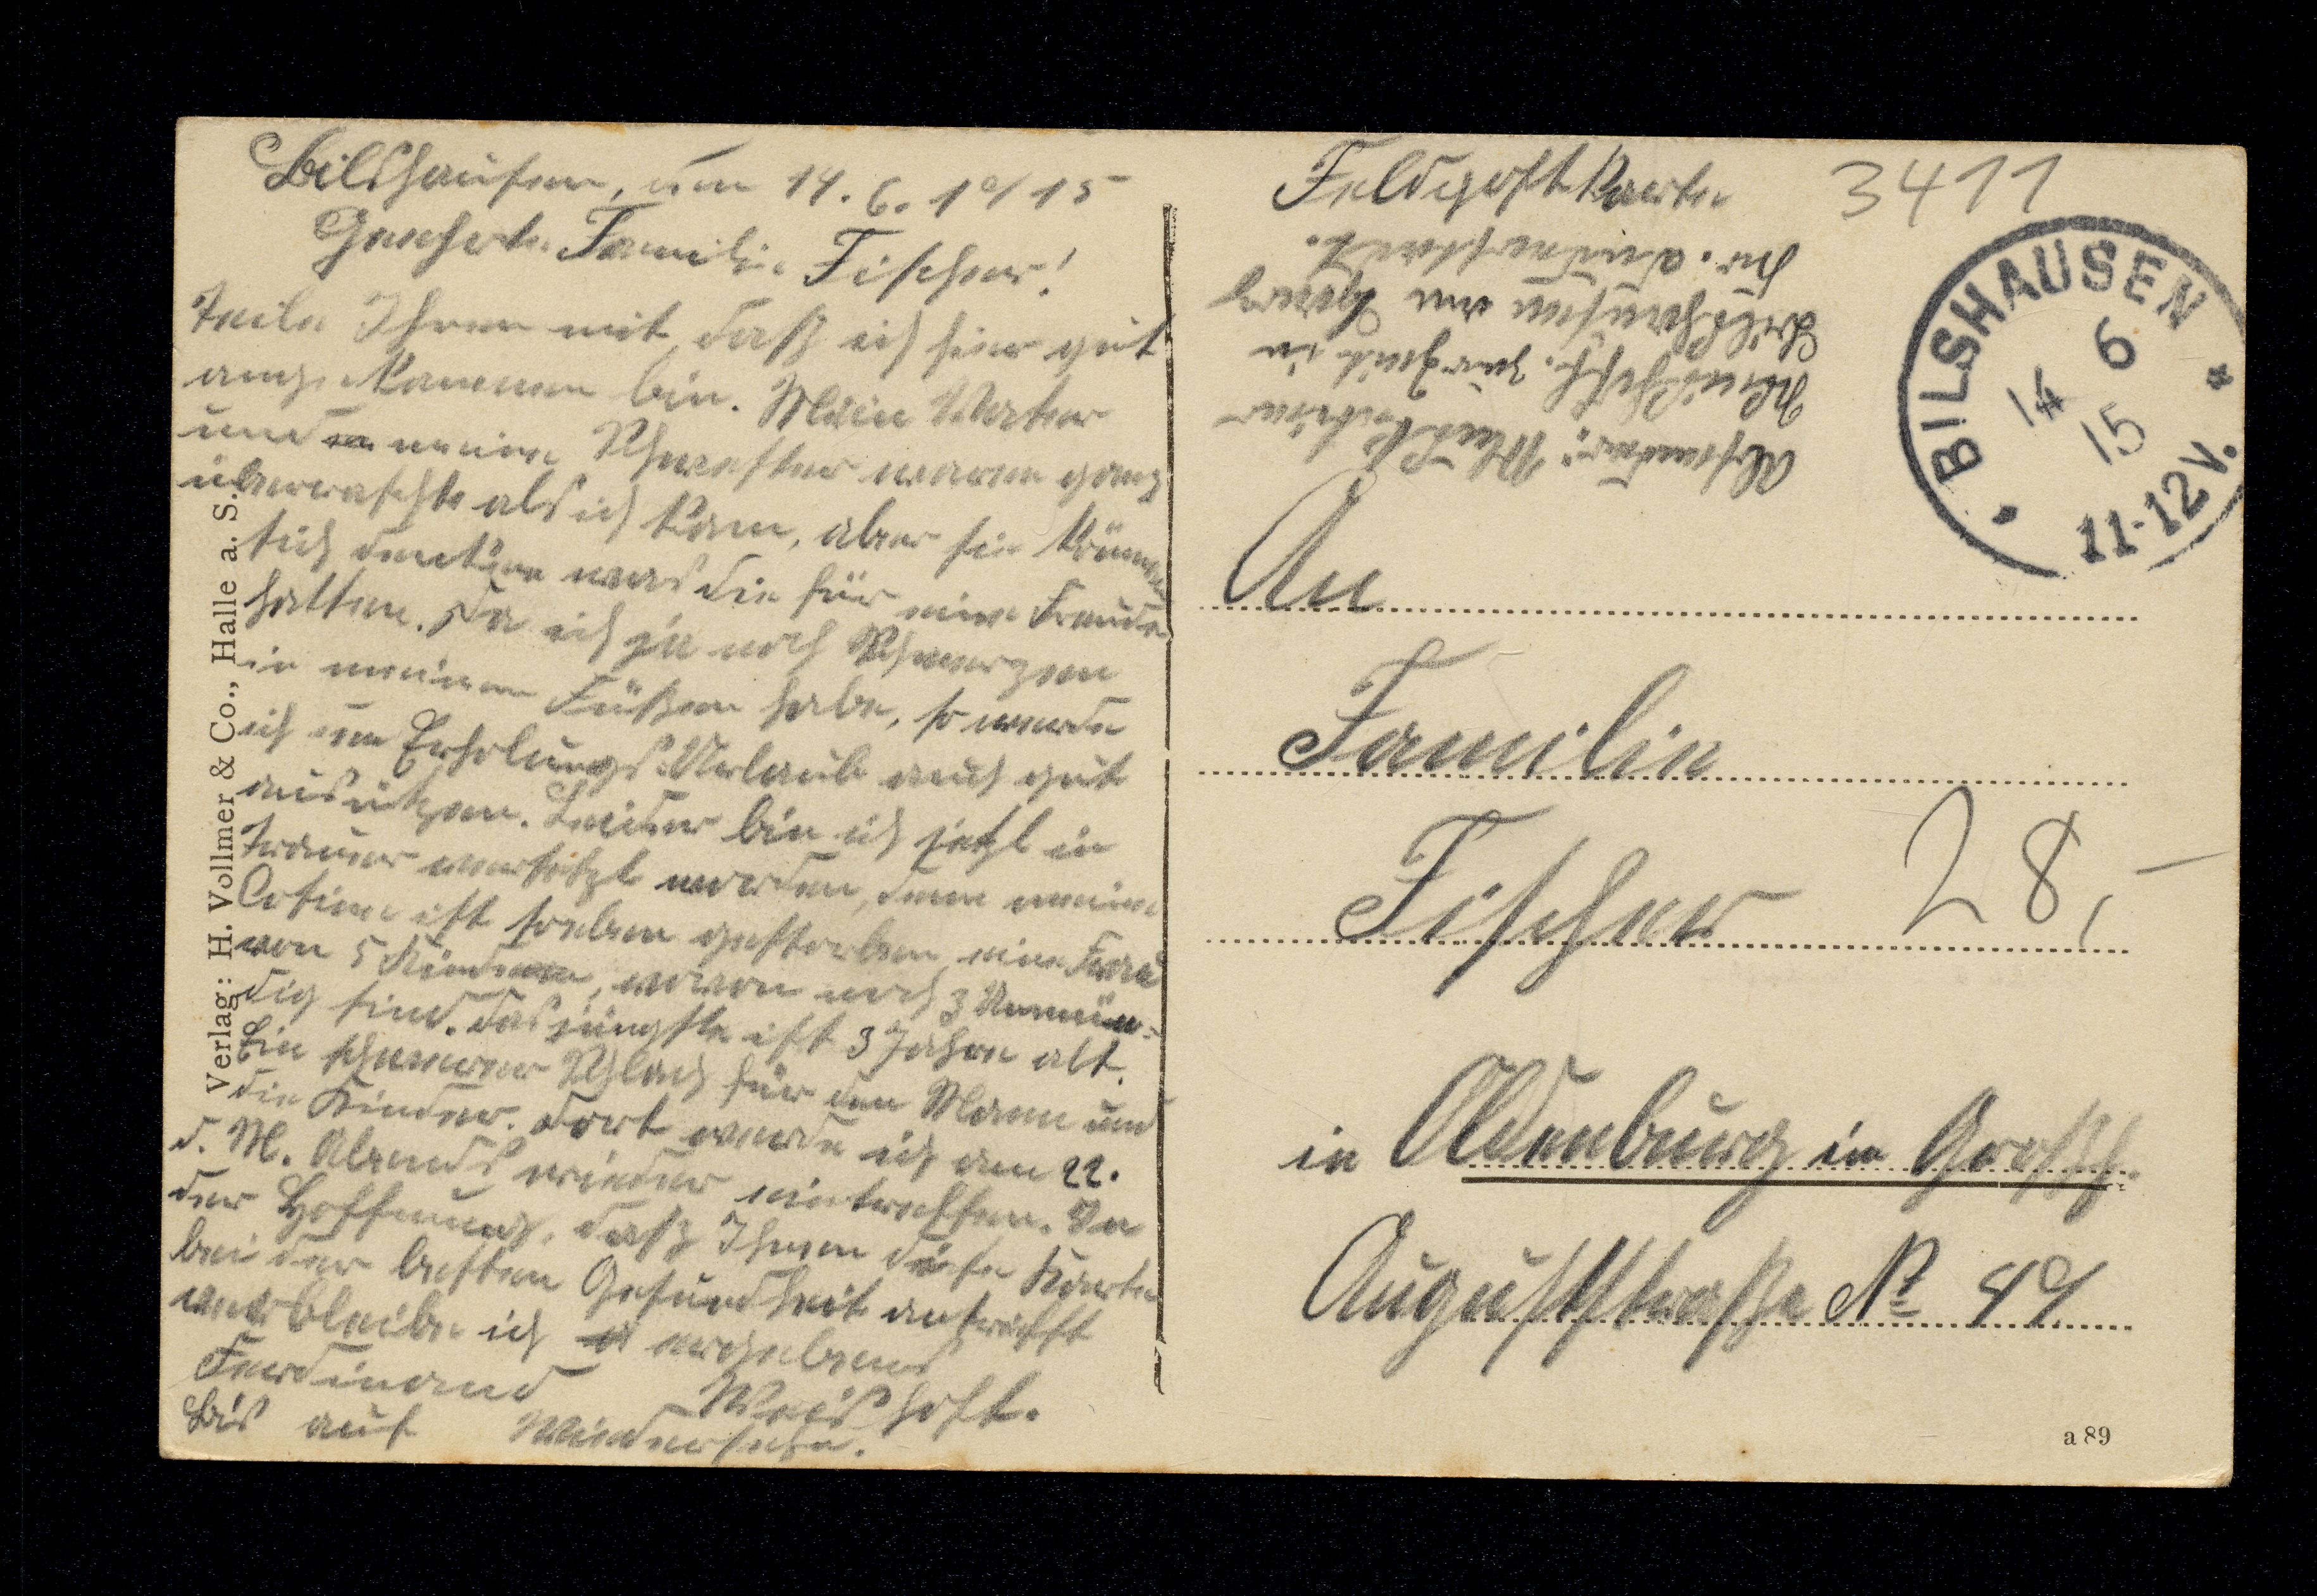 Bilshausen, den 14. 6. 19/15
Geehrte Familie Fischer!
Teile Ihnen mit, daß ich hier gut
angekommen bin. Mein Vater
und meine Schwester waren ganz
überraschte als ich kam, aber sie können
sich denken was die für eine Freude
hatten. Da ich ja noch Schmerzen
in meinen Füßen habe, so werde
ich um Erholungs-Urlaub auch gut
Leider bin ich jetzt in
Trauer versetzt worden, denn meine
Cosine ist soeben gestorben, eine Frau
von 5 Kindern, wovon noch 3 Unmün-
dig sind. Das jüngste ist 3 Jahre alt.
Ein schwerer Schlach für den Mann und
die Kinder. Dort werde ich am 22.
d. M. Abends wieder eintreffen. In
der Hoffnung, daß Ihnen diese Karte
bei der besten Gesundheit antrifft
verbleibe ich ergebenst
Ferdinand
Bis auf Wiedersehn.
Verlag: H. Vollmer & Co., Halle a. S.
Feldpostkarte
3411
Absender:
zur Zeit in
Bilshausen am Harz
Kr. Duderstadt.
BILSHAUSEN
14 6
15
11-12V.
An
Familie
Fischer
28,-
in Oldenburg in Großh.
Auguststraße No 49
a 89